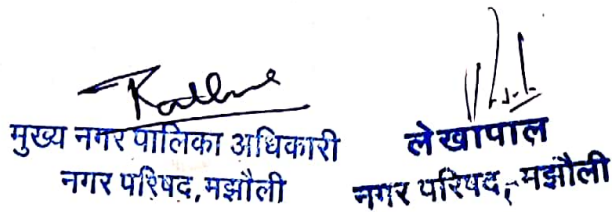 मुख्य नगर पालिका अधिकारी
नगर परिषद, मझौली
लेखापाल
नगर परिषद, मझौली